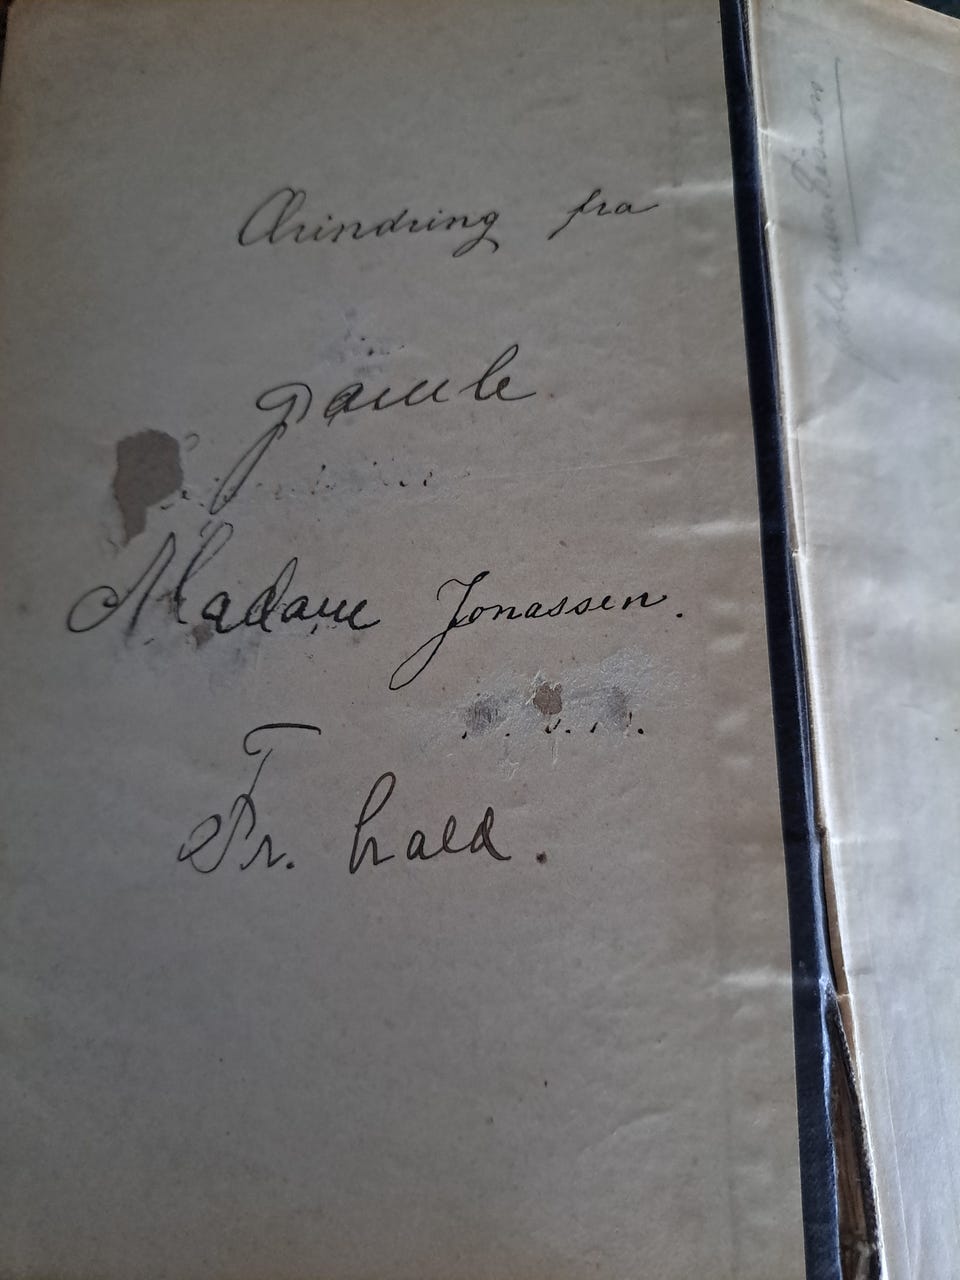 Erindring fra
gamle
Madame Jonassen.
Fr. Krald.